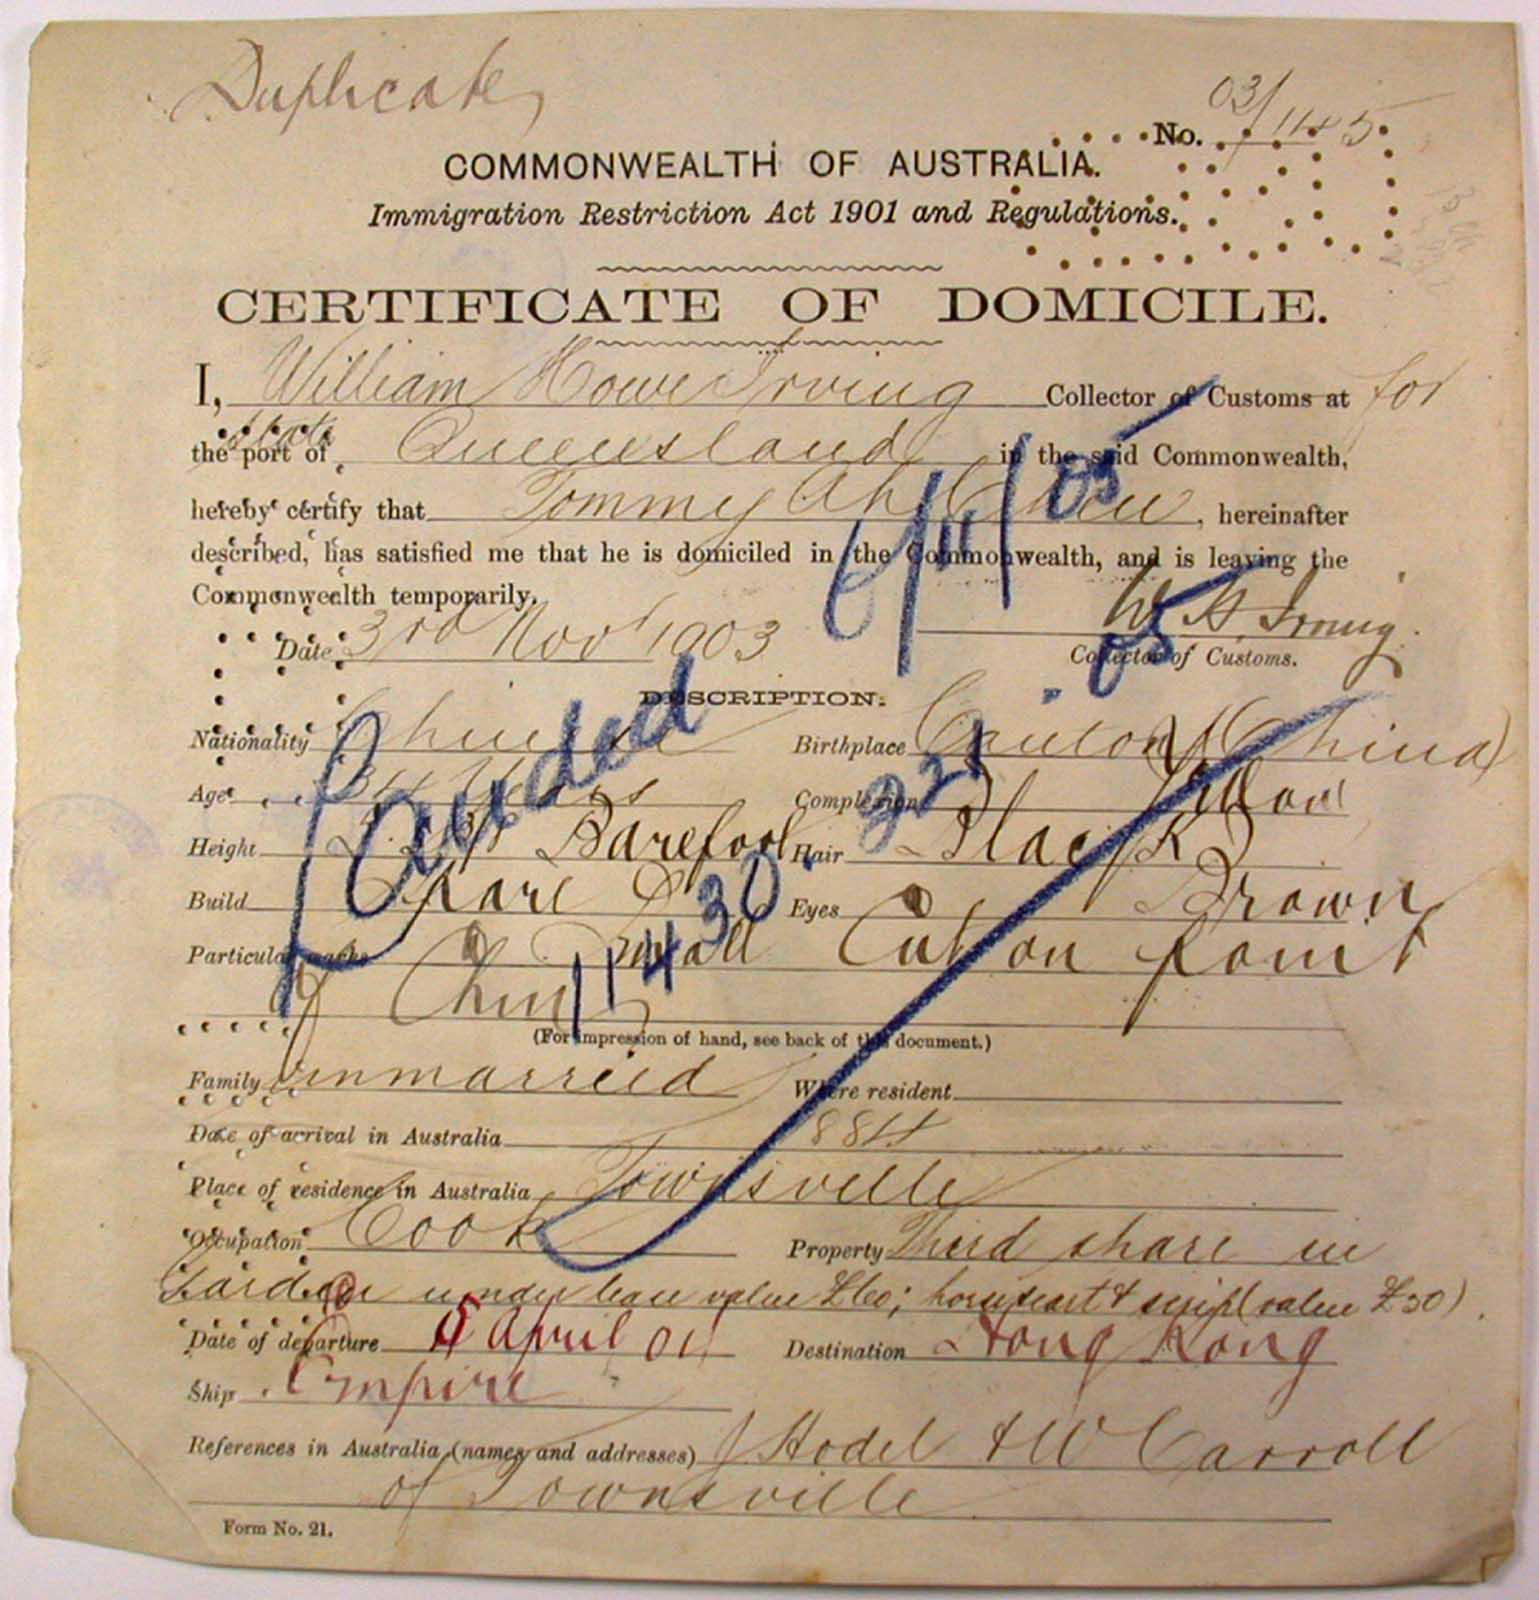 Duplicate
No. 03/1145
COMMONWEALTH OF AUSTRALIA.
Immigration Restriction Act 1901 and Regulations.
CERTIFICATE OF DOMICILE.
I, William Howe Irving Collector of Customs at for
the port of state Queensland in the said Commonwealth,
hereby certify that Tommy Ah Chew, hereinafter
described, has satisfied me that he is domiciled in the Commonwealth, and is leaving the
Commonwealth temporarily.
W. H. Irving
Date 3rd Nov 1903 Collector of Customs.
DESCRIPTION.
Nationality Chinese Birthplace Canton (China)
Age 34 Years Complexion
Height Barefoot Hair Black
Build Spare Eyes Brown
Particular marks a Small Cut on point
of Chin
(For impression of hand, see back of this document.)
Family unmarried Where resident
Date of arrival in Australia 1884
Place of residence in Australia Townsville
Occupation Cook Property Third share in
Garden under lease value £60; horse, cart & (value £30)
Date of departure 5 April 04 Destination Hong Kong
Ship Empire
References in Australia (names and addresses) J Hodel & W Carroll
of Townsville
Form No. 21.
Landed
05